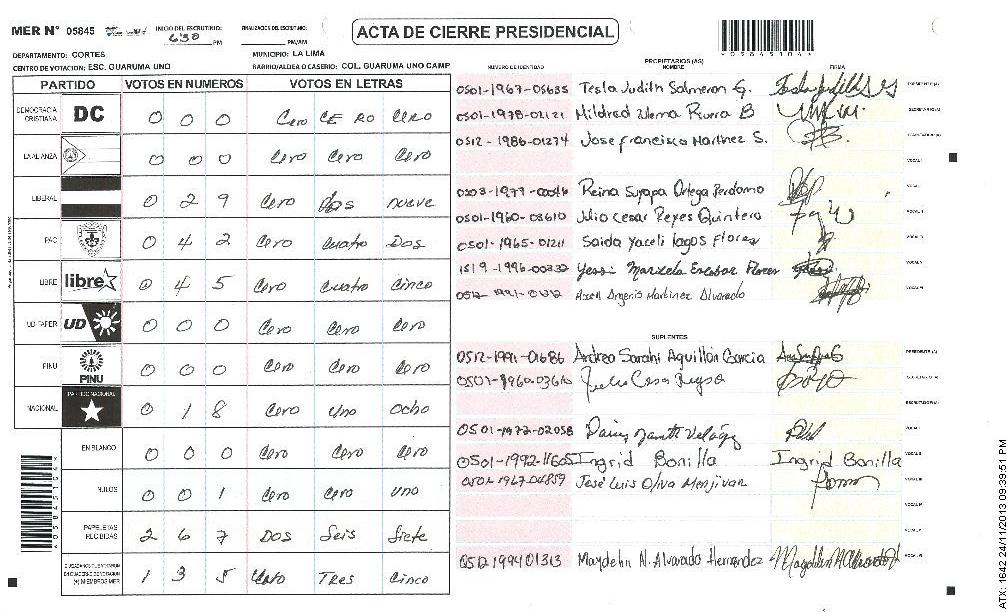 MER Nº 05845 INICIO DEL ESCRUTINIO: FINALIZACION DEL ESCRUTINIO:
PM PM/AM
ACTA DE CIERRE PRESIDENCIAL
DEPARTAMENTO: CORTES MUNICIPIO: LA LIMA
CENTRO DE VOTACION: ESC. GUARUMA UNO BARRIO/ALDEA O CASERIO: COL. GUARUMA UNO CAMP
NUMERO DE IDENTIDAD PROPIETARIOS (AS) NOMBRE FIRMA
PARTIDO VOTOS EN NUMEROS VOTOS EN LETRAS
DEMOCRACIA CRISTIANA DC 0 0 0 Cero CERO CERO
LA ALIANZA 0 0 0 Cero Cero Cero
LIBERAL 0 2 9 Cero dos nueve
PAC 0 4 2 Cero Cuatro Dos
LIBRE libre 0 4 5 Cero Cuatro Cinco
UD FAPER UD 0 0 0 Cero Cero Cero
PINU PINU 0 0 0 Cero Cero Cero
NACIONAL PARTIDO NACIONAL 0 1 8 Cero Uno Ocho
EN BLANCO 0 0 0 Cero Cero Cero
NULOS 0 0 1 Cero Cero uno
PAPELETAS RECIBIDAS 2 6 7 Dos Seis Siete
(+) MIEMBROS MER 1 3 5 Uno TRES Cinco
0501-1967-05635 Tesla Judith Salmeron G.
0501-1978-02121 Mildred Rivera B
0512-1986-01274 Jose francisco Martinez S.
Reina Suyapa Ortega Perdomo
0501-1960-03610 Julio Cesar Reyes Quintero
0501-1965-01211 Saida Yaceli lagos Flores
1519-1996-00332 Maricela Escobar Flores
Argenis Martinez Alvarado
SUPLENTES
0512-1991-01686 Andrea Sarahi Aguillón Garcia
PRESIDENTE (A)
0501-1972-02058
0501-1992-11605 Ingrid Bonilla Ingrid Bonilla
0501-1967-04859 José Luis Oliva Menjivar
0512 1994 01313 Maydelin N. Alvarado Hernandez
ATX: 1642 24/11/2013 09:39:51 PM